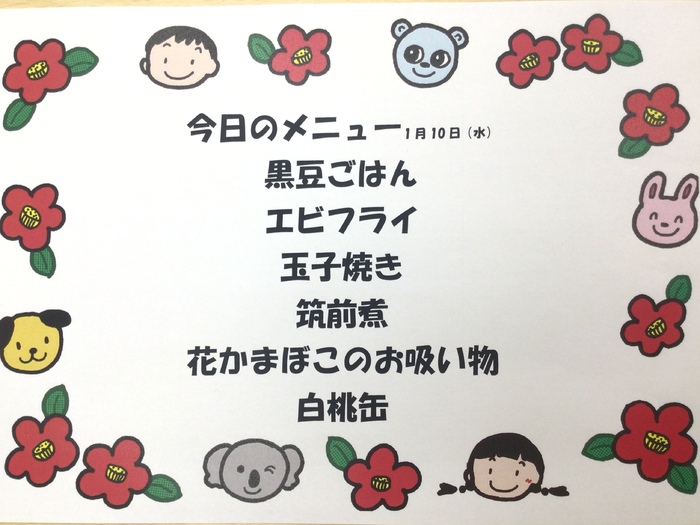 今日のメニュー1月10日(水)
黒豆ごはん
エビフライ
玉子焼き
筑前煮
花かまぼこのお吸い物
白桃缶